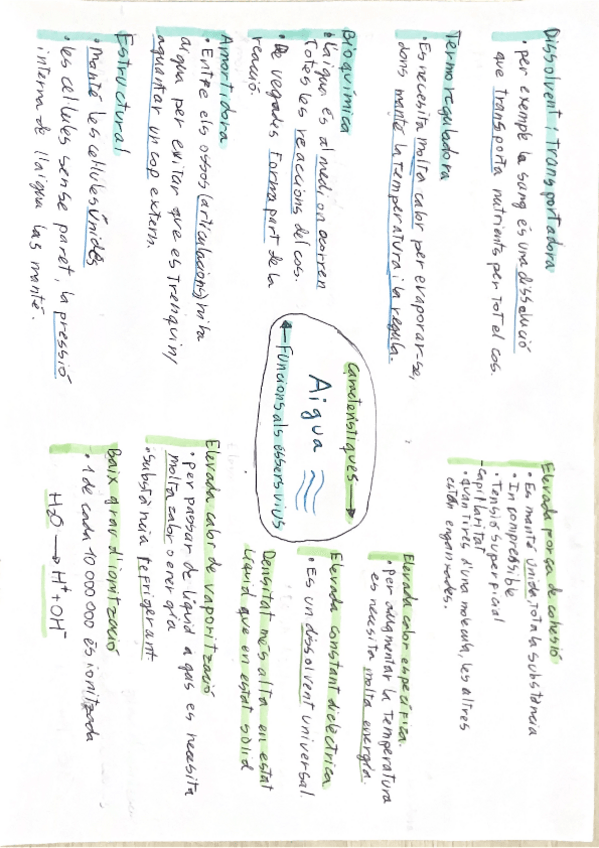 Dissolvent i transportadora
• per exemple la sang és una dissolució
que transporta nutrients per tot el cos.
Termoreguladora
• Es necesita molta calor per evaporar-se,
doncs manté la temperatura i la regula.
Bioquímica
• L'aigua és al medi on ocorren
Totes les reaccions del cos.
• De vegades forma part de la
reacció.
Amortidora
• Entre els ossos (articulacions) hi ha
aigua per evitar que es trenquin/
aguantar un cop extern.
Estructural
• Manté les cèl·lules Unides
• les cèl·lules sense paret, la pressió
interna de l'aigua las manté.
Característiques →
Aigua
← Funcions als éssers vius
Elevada força de cohesió
• Es manté unida tota la substància
• Incompresible
• Tensió superficial
- Capil·laritat
• quan tires d'una molecula, les altres
están enganxades.
Elevada calor específica.
• Per augmentar la temperatura
es necesita molta energia.
Elevada constant dielèctrica
• Es un dissolvent universal.
Densitat més alta en estat
líquid que en estat sòlid
Elevada calor de vaporització
• per passar de líquid a gas es necesita
molta calor o energia
• Substància refrigerant.
Baix grau d'ionització
• 1 de cada 10 000 000 és ionitzada
H2O → H+ + OH-